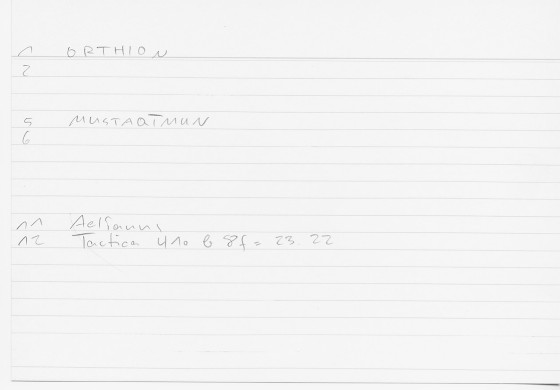 1 ORTHION
2
5 MUSTAQĪMUN
6
11 Aelianus
12 Tactica 410 b 8f = 23. 22